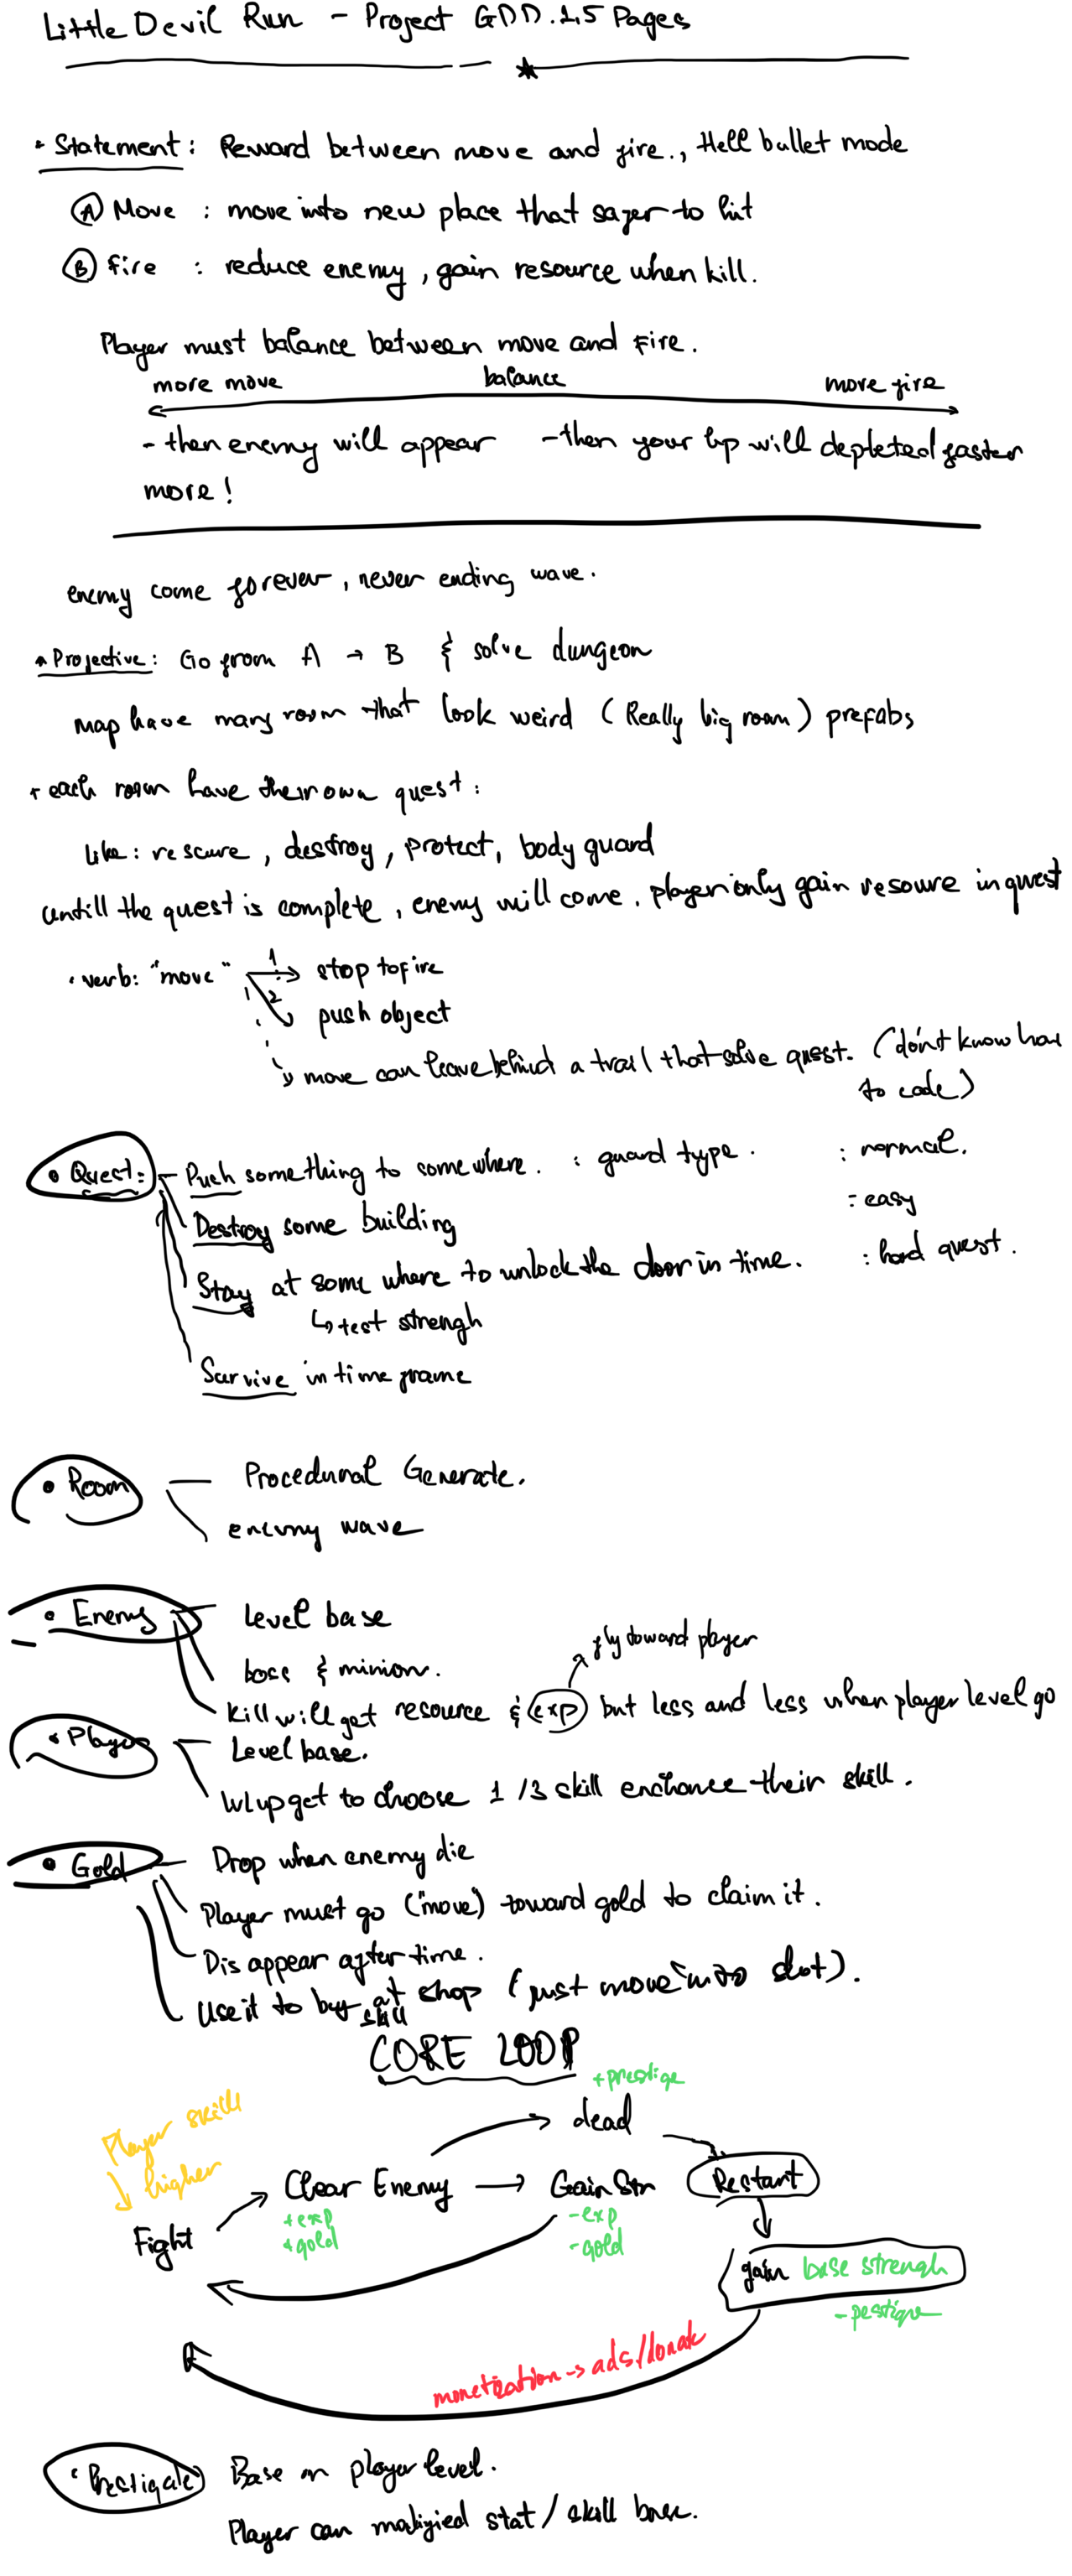 Little Devil Run - Project GDD. 1,5 Pages
• Statement: Reward between move and fire., Hell bullet mode
A Move : move into new place that safer to hit
B Fire : reduce enemy, gain resource when kill.
Player must balance between move and fire.
more move balance more fire
- then enemy will appear - then your hp will depleted faster
more!
enemy come forever, never ending wave.
• Projective: Go from A → B & solve dungeon
map have many room that look weird (Really big room) prefabs
• each room have their own quest:
like: rescure, destroy, protect, body guard
untill the quest is complete, enemy will come. player only gain resoure in quest
• verb: "move" 1 → stop to fire
2 push object
move can leave behind a trail that solve quest. (don't know how
to code)
• Quest: - Push something to somewhere. : guard type. : normal.
Destroy some building : easy
Stay at some where to unlock the door in time. : hard quest.
↳ test strengh
Survive in time frame
• Room - Procedural Generate.
enemy wave
• Enemy - Level base
fly toward player
boss & minion.
Kill will get resource & exp but less and less when player level go
• Player - Level base.
get to choose 1/3 skill enchance their skill.
• Gold - Drop when enemy die
Player must go ("move") toward gold to claim it.
Disappear after time.
Use it to buy skill at shop (just move into slot).
CORE LOOP
+ prestige
Player skill dead
higher Clear Enemy → Gain Str Restart
+ exp - exp
Fight + gold - gold
gain base strengh
monetization → ads/donate
Base on player level.
Player can stat / skill